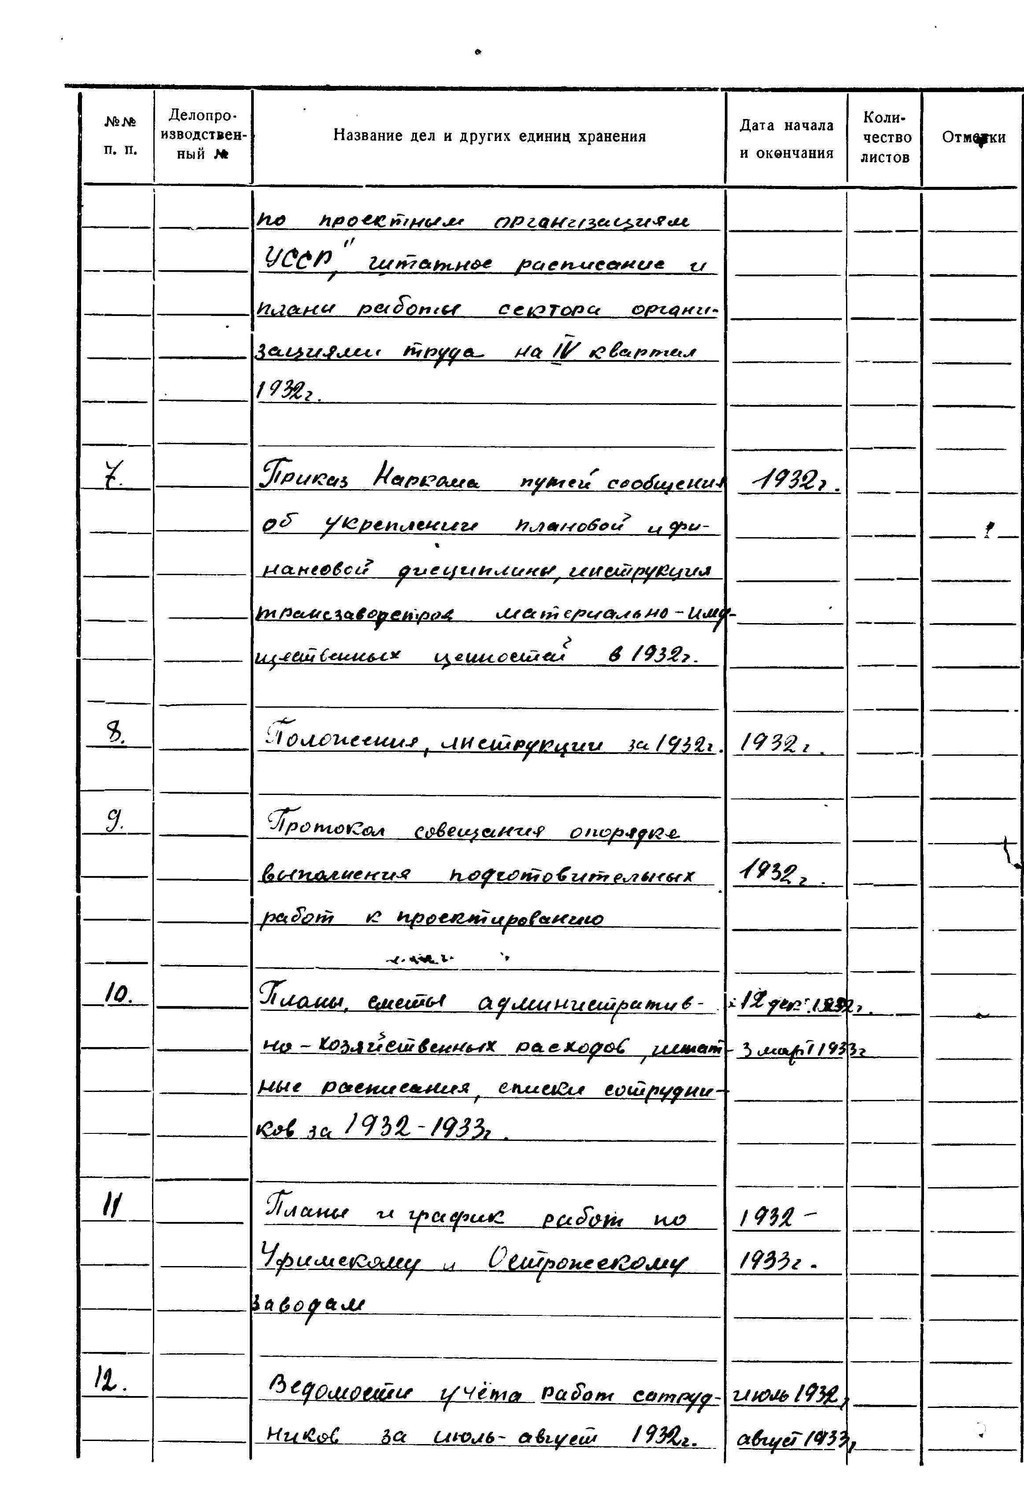 №№ п. п.
Делопро-
изводствен-
ный №
Название дел и других единиц хранения
Дата начала
и окончания
Коли-
чество
листов
Отметки
по проектным организациям
УССР", штатное расписание и
планы работы сектора органи-
зациями труда на IV квартал
1932г.
7. Приказ Наркома путей сообщения 1932г.
об укреплении плановой и фи-
нансовой дисциплины, инструкция
материально-иму-
щественных ценностей в 1932г.
8. Положения, инструкции за 1932г. 1932г.
9. Протокол совещания о порядке
выполнения подготовительных 1932г.
работ к проектированию
10. Планы, сметы административ- 12 дек. 1932г.
но-хозяйственных расходов, штат- 3 март 1933г
ные расписания, списки сотрудни-
ков за 1932-1933г.
11 Планы и график работ по 1932-
Уфимскому и Острожескому 1933г.
заводам
12. Ведомости учёта работ сатруд- июль 1932,
ников за июль-август 1932г. август 1933,